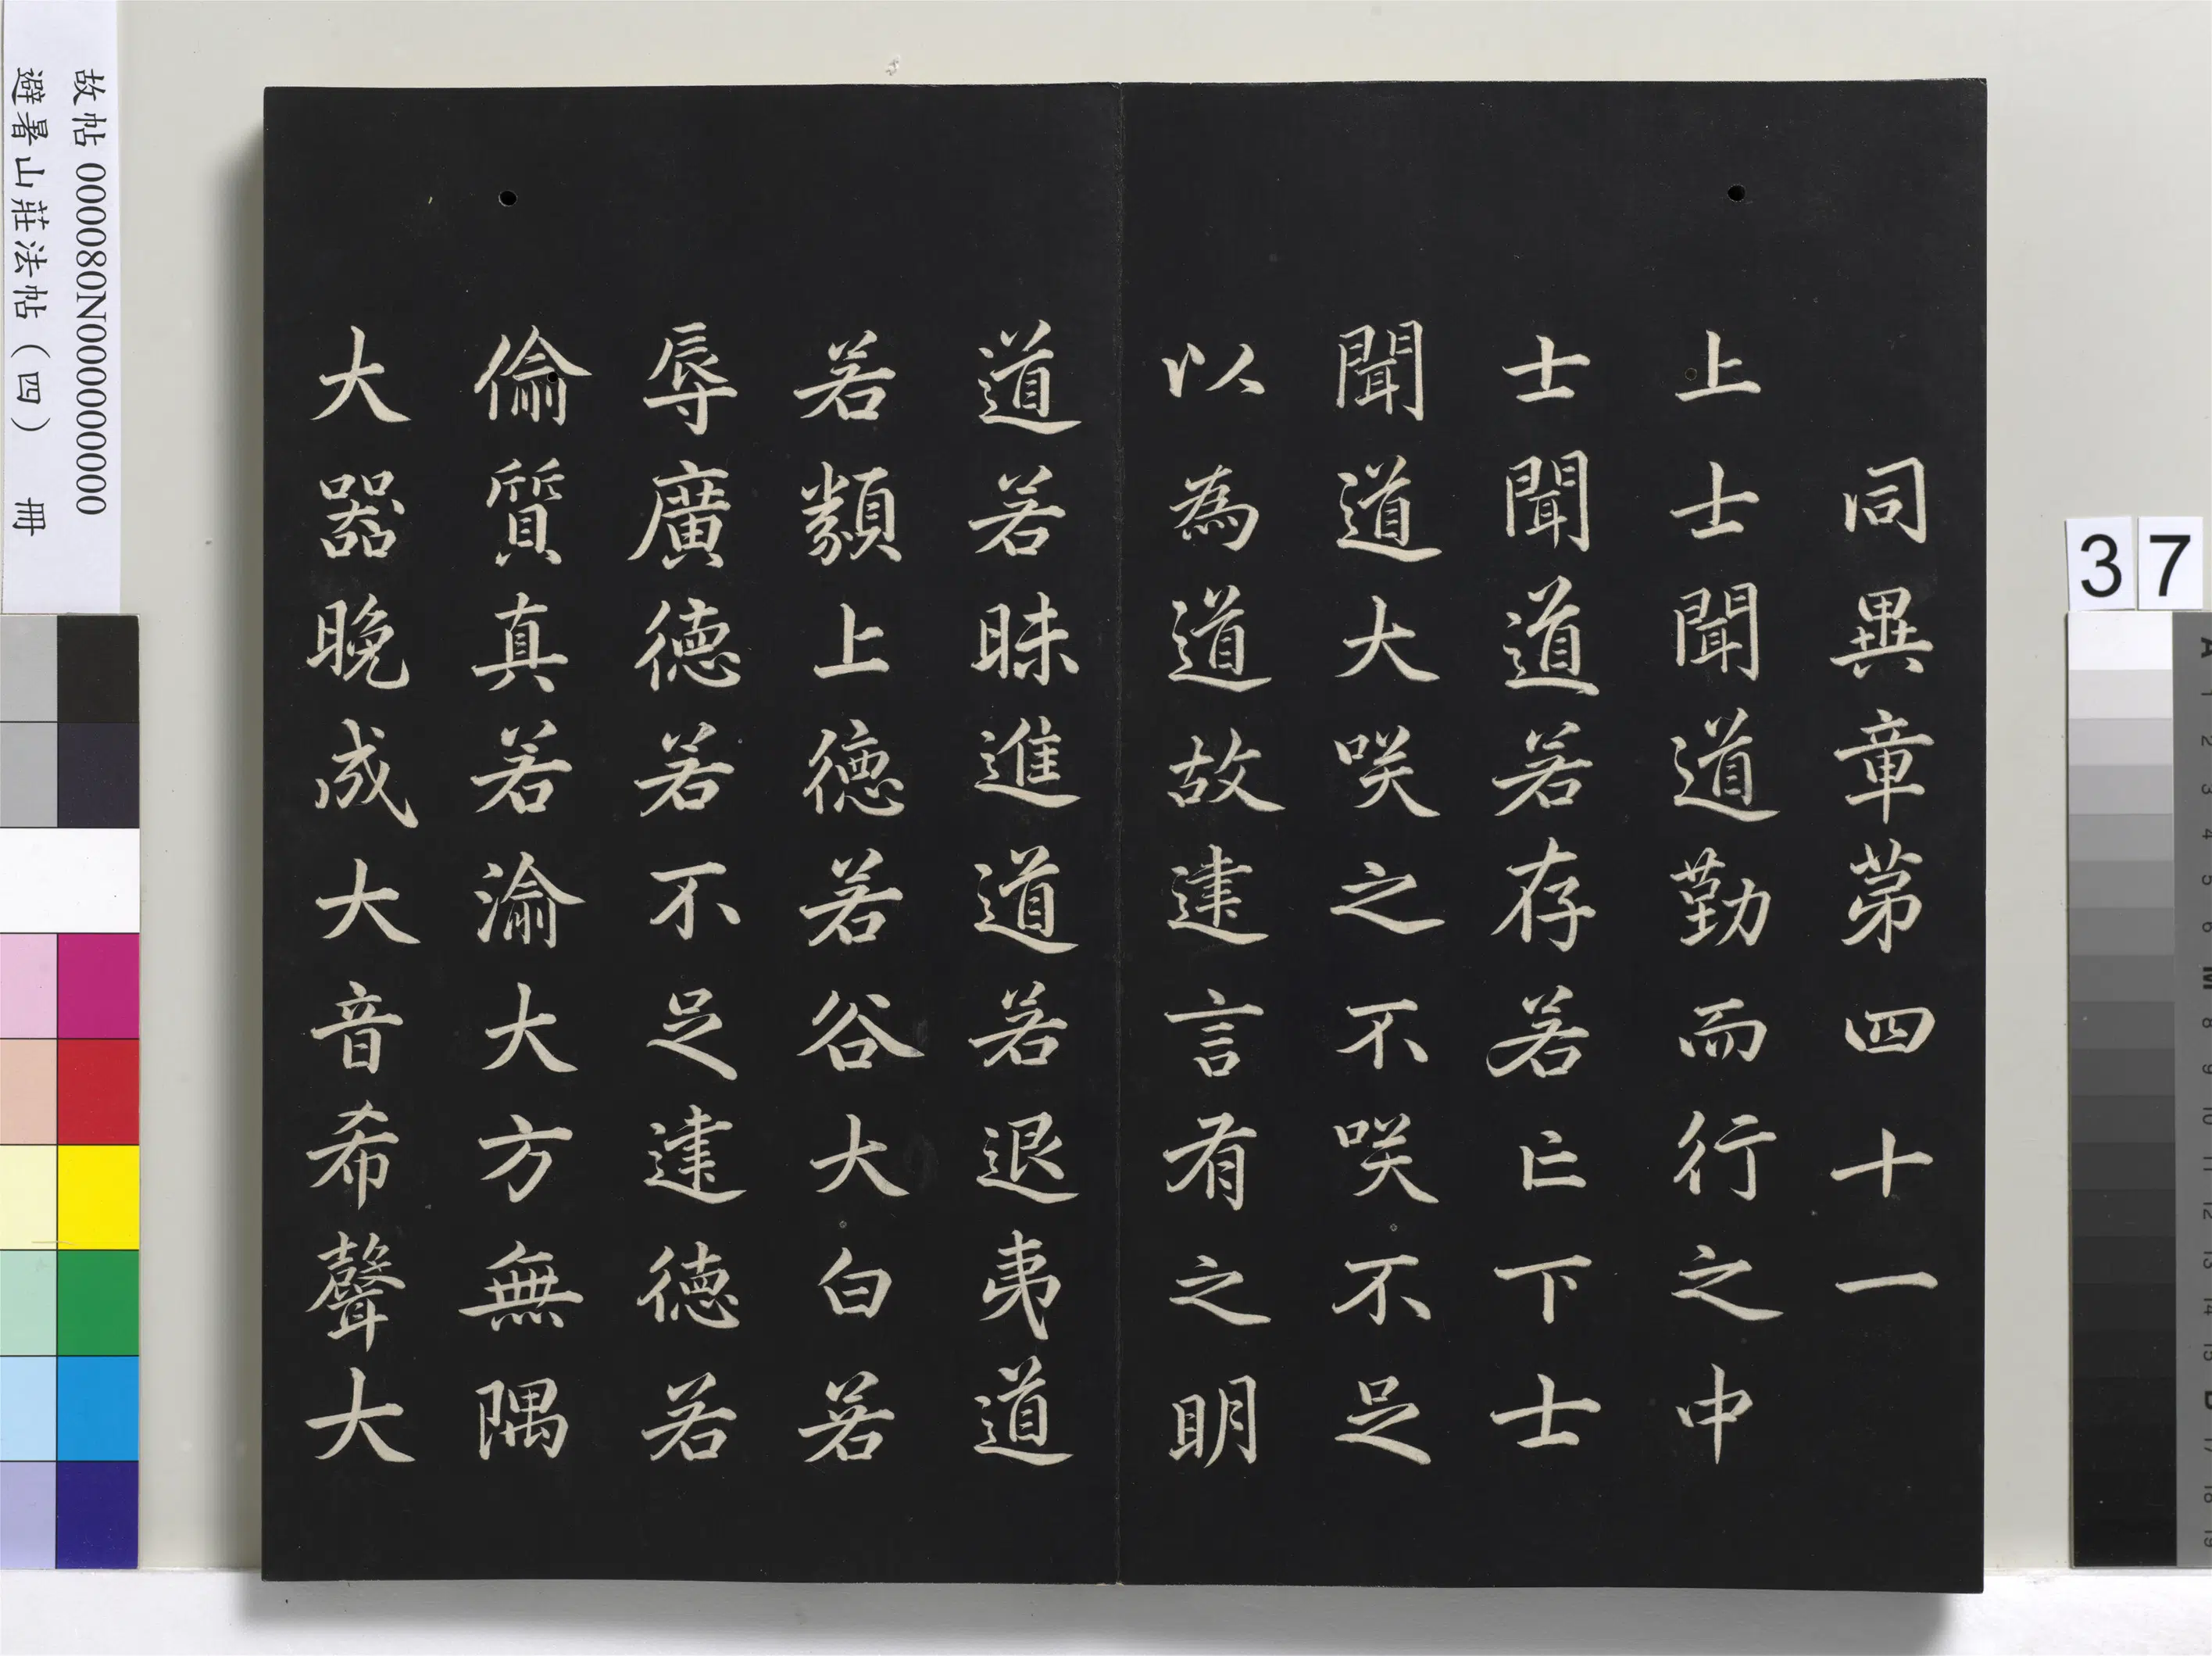 同異章第四十一
上士聞道勤而行之中
士聞道若存若亡下士
聞道大咲之不咲不足
以為道故建言有之明
道若昧進道若退夷道
若類上德若谷大白若
辱廣德若不足建德若
偷質真若渝大方無隅
大器晚成大音希聲大
故帖 000080N000000000
避暑山莊法帖(四) 冊
37
A 1 2 3 4 5 6 M 8 9 10 11 12 13 14 15 B 17 18 19